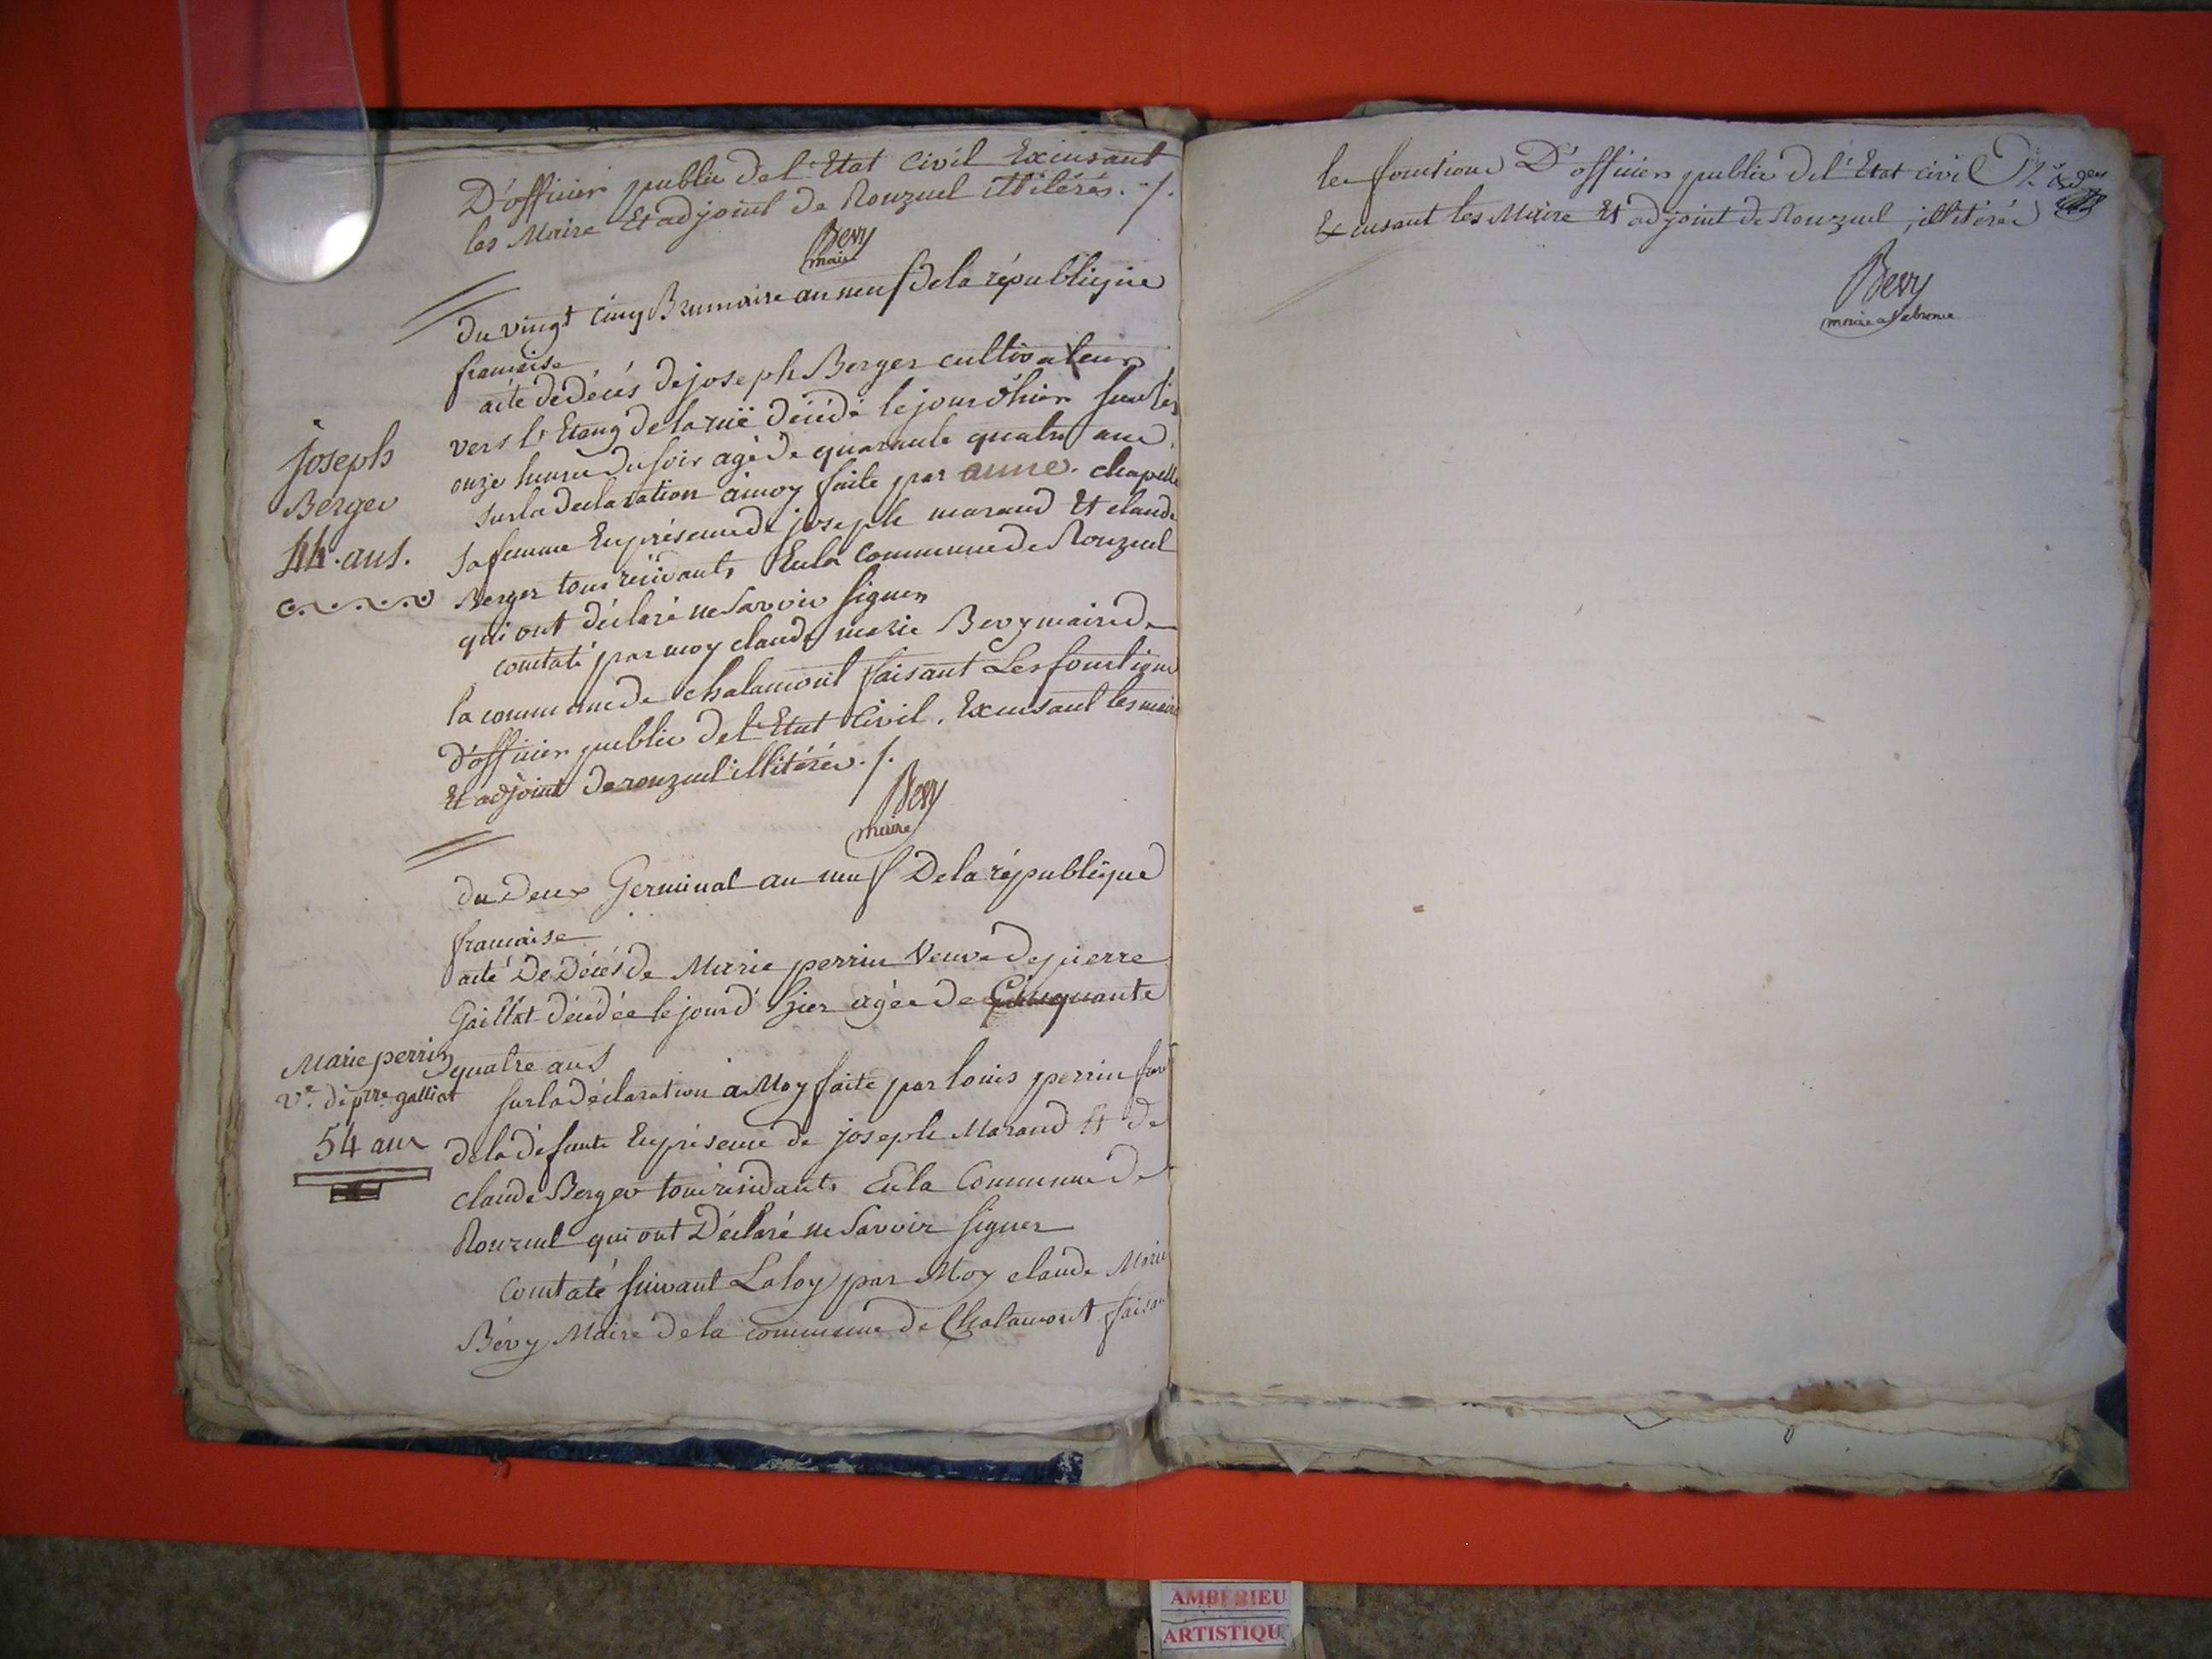 D'officier public del Etat Civil Excusant
les Maire Et adjoint de Ronzuel illitérés ./.
Bevy
maire
du vingt cinq Brumaire an neuf dela république
francaise
acte de décés de joseph Berger cultivateur
vers l'Etang dela ruë décédé le jour d'hier sur les
onze heures du soir agé de quarante quatre ans
sur la declaration à moy faite par anne chapelle
sa femme En présence de joseph marand Et claude
Berger tous résidants En la Commune de Ronzuel
qui ont déclaré ne Savoir signer
constaté par moy claude marie Bevy maire de
la commune de chalamont faisant Les fonctions
d'officier public del Etat Civil, Excusant les maire
Et adjoint de ronzuel illitérés ./.
Bevy
maire
joseph
Berger
44 ans.
du deux Germinal an neuf Dela république
francaise
acte De Décés de Marie perrin Veuve de pierre
Gaillat décédée le jour d'hier agée de Cinquante
quatre ans
sur la déclaration a Moy faite par louis perrin
dela défunte En présence de joseph Marand Et de
claude Berger tous résidants En la Commune de
Ronzuel qui ont Déclaré ne Savoir signer
Constaté suivant La loy par Moy claude Marie
Bévy Maire dela commune de Chalamont faisant
Marie perrin
Ve. de prre galliat
54 ans
les fonctions D'officier public del Etat civil
Excusant les Maire Et adjoint de Ronzuel illitérés
Bevy
maire
AMBERIEU
ARTISTIQU